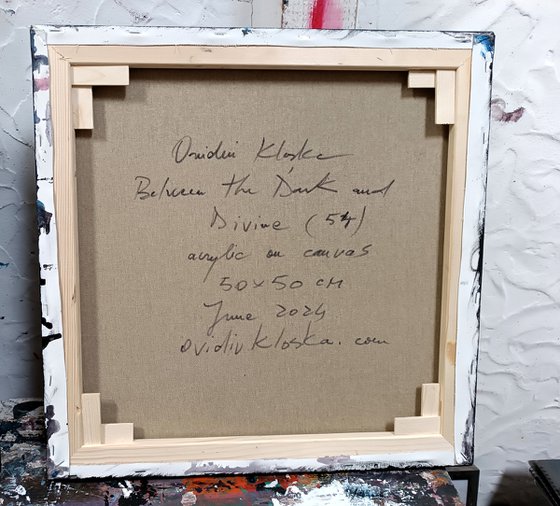 Ovidiu Kloska
Between the Dark and
Divine (54)
acrylic on canvas
50x50 cm
June 2024
ovidiukloska.com